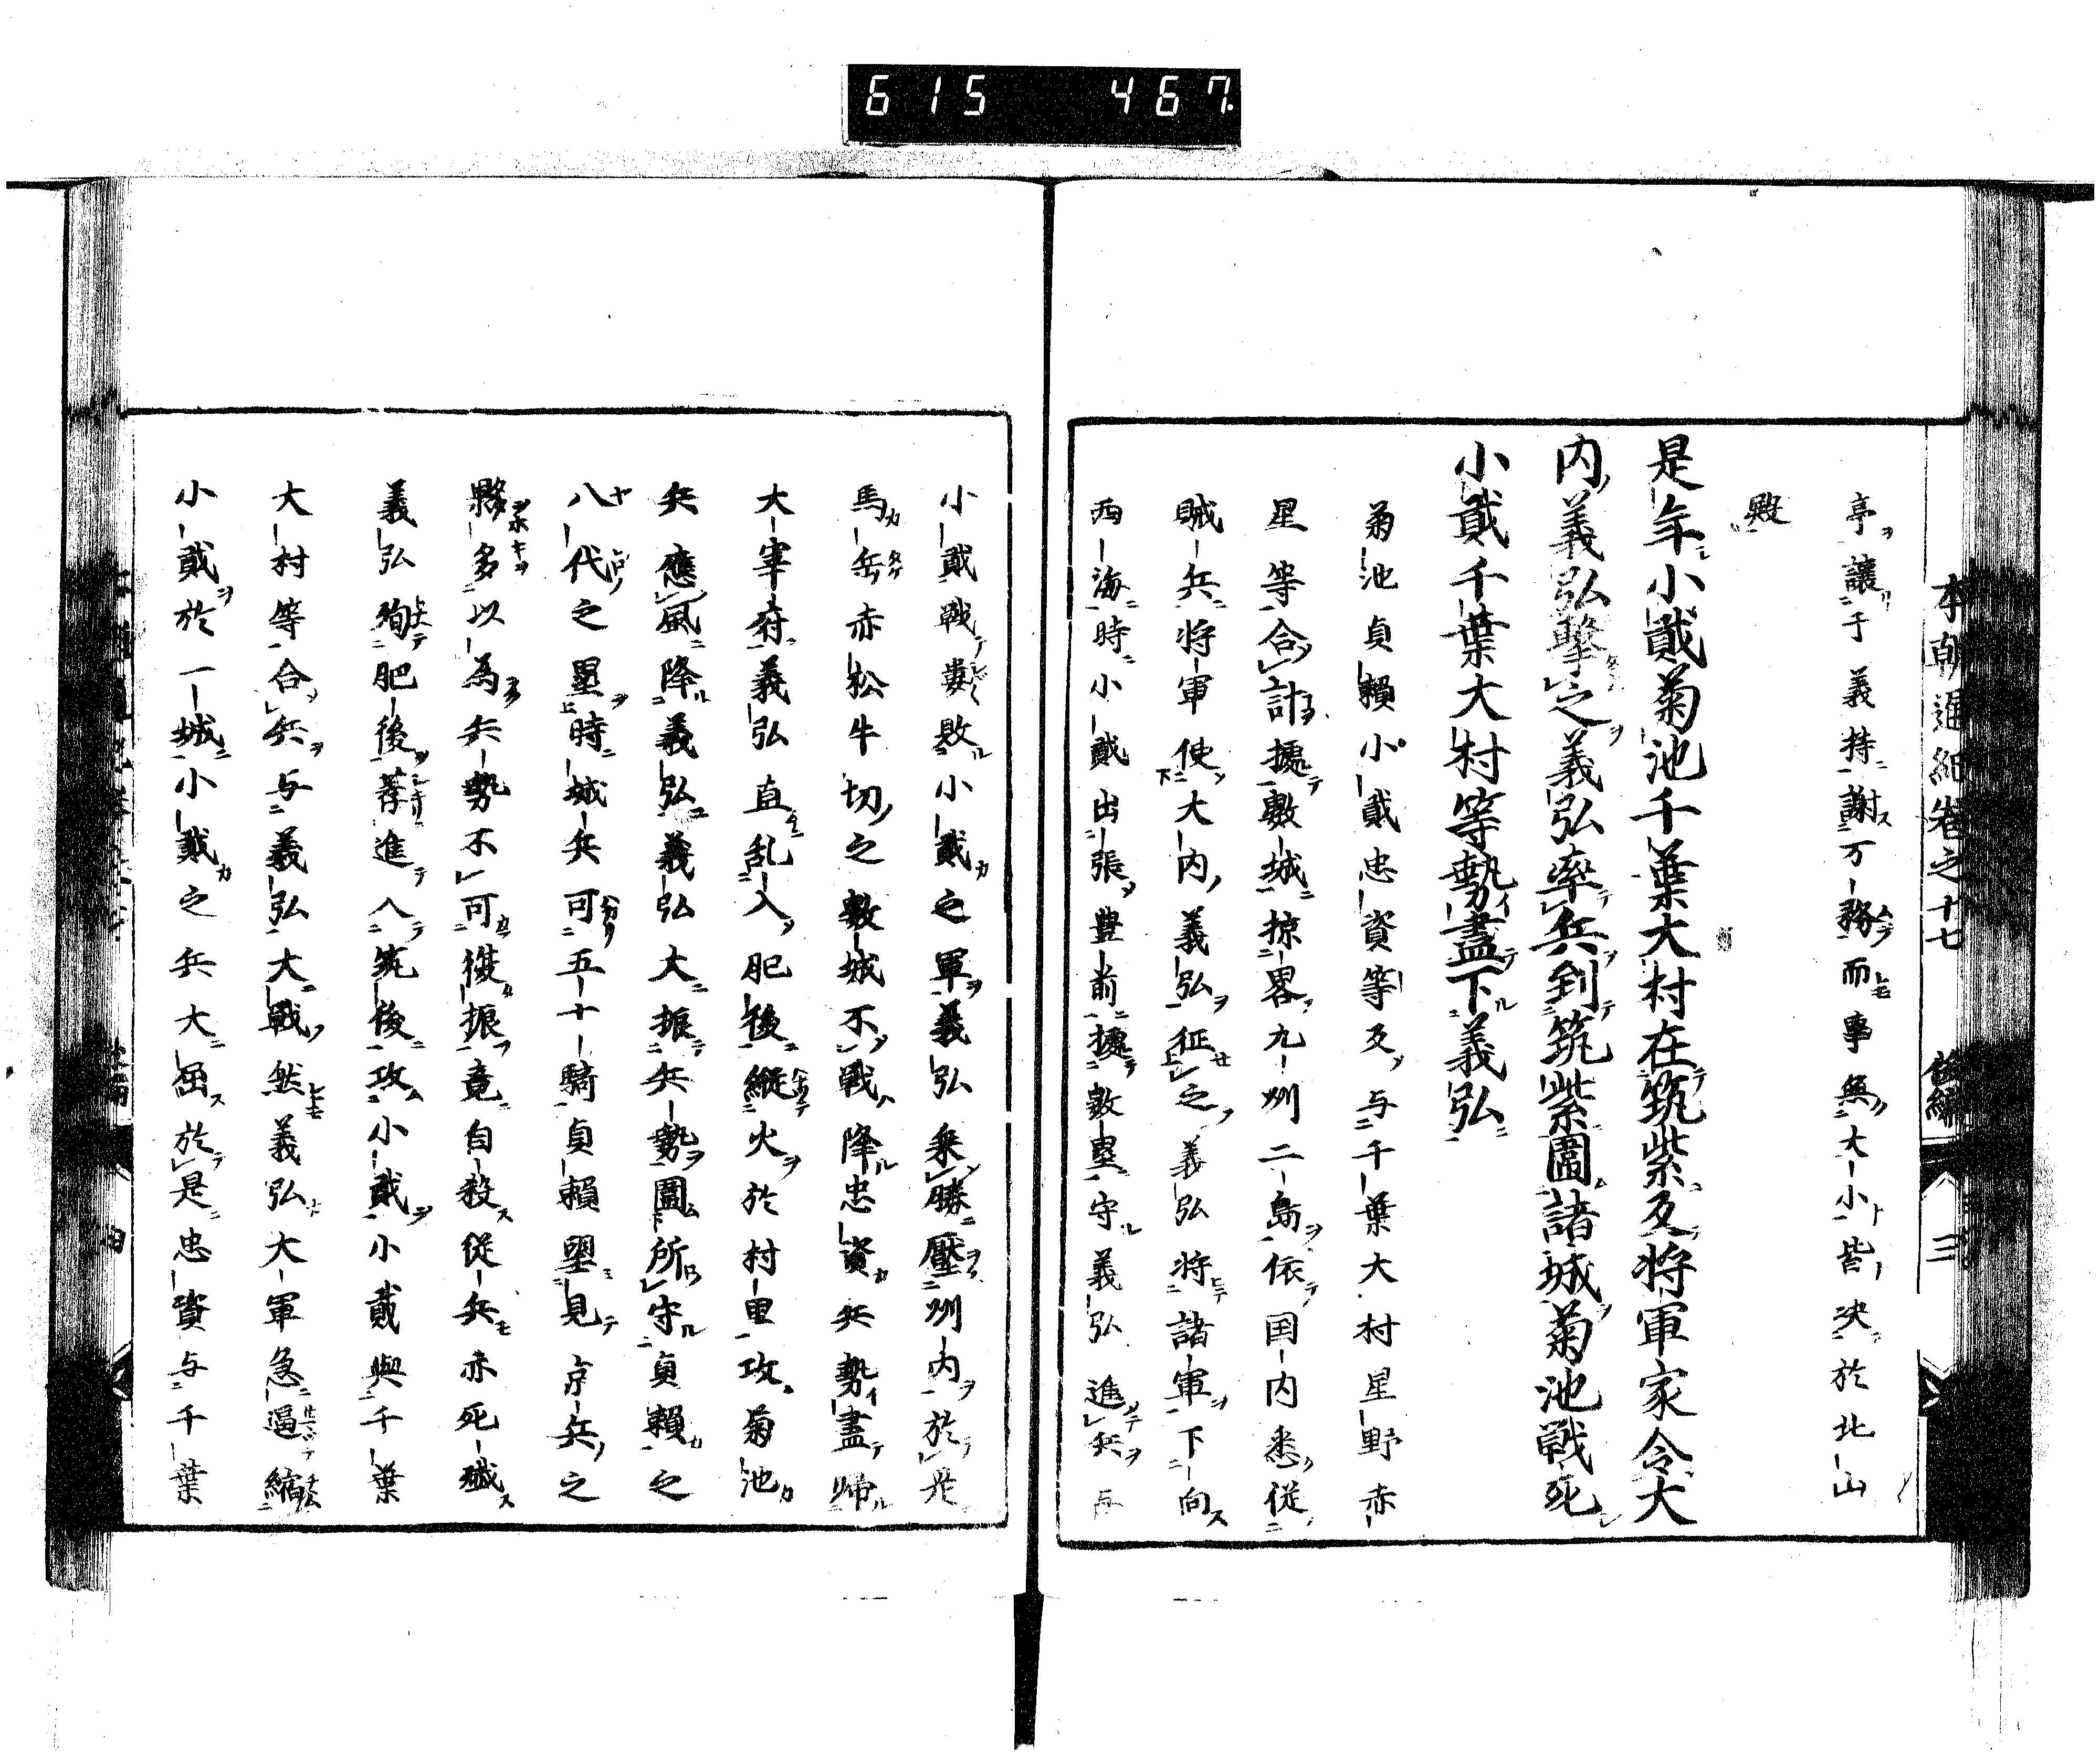 615 467
本朝通紀卷之十七 後編 三
亭讓于義持謝万務而事無大小皆决於北山
殿
是年小貳菊池千葉大村在筑紫及将軍家令大
内義弘擊之義弘率兵到筑紫圍諸城菊池戰死
小貳千葉大村等勢盡下義弘
菊池貞賴小貳忠資等及与千葉大村星野赤
星等合計據數城掠畧九州二島依国内悉從
賊兵将軍使大内義弘征之義弘将諸軍下向
西海時小貳出張豊前據數壘守義弘進兵与
小貳戰婁敗小貳之軍義弘乗勝壓州内於是
馬岳赤松牛切之數城不戰降忠資兵勢盡帰
大宰府義弘直乱入肥後縦火於村里攻菊池
兵應風降義弘義弘大振兵勢圍所守貞賴之
八代之壘時城兵可五十騎貞賴望見京兵之
夥多以為兵勢不可復振竟自殺従兵亦死殲
義弘殉肥後荐進入筑後攻小貳小貳與千葉
大村等合兵与義弘大戰然義弘大軍急逼縮
小貳於一城小貳之兵大屈於是忠資与千葉